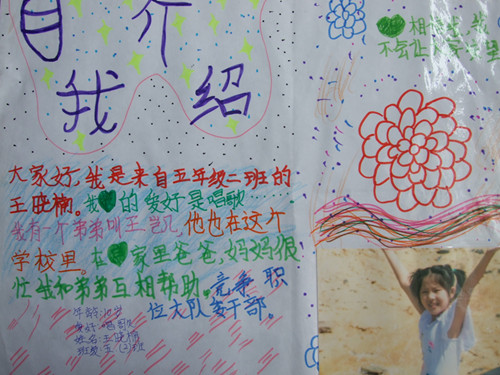 自介
我绍
大家好,我是来自五年级二班的
王晓楠。我的爱好是唱歌...
我有一个弟弟叫王凯,他也在这个
学校里。在家里爸爸,妈妈很
忙我和弟弟互相帮助。竞争职
位大队委干部。
年龄:
爱好:唱歌
姓名:王晓楠
班级:五(2)班
相信我
不会让